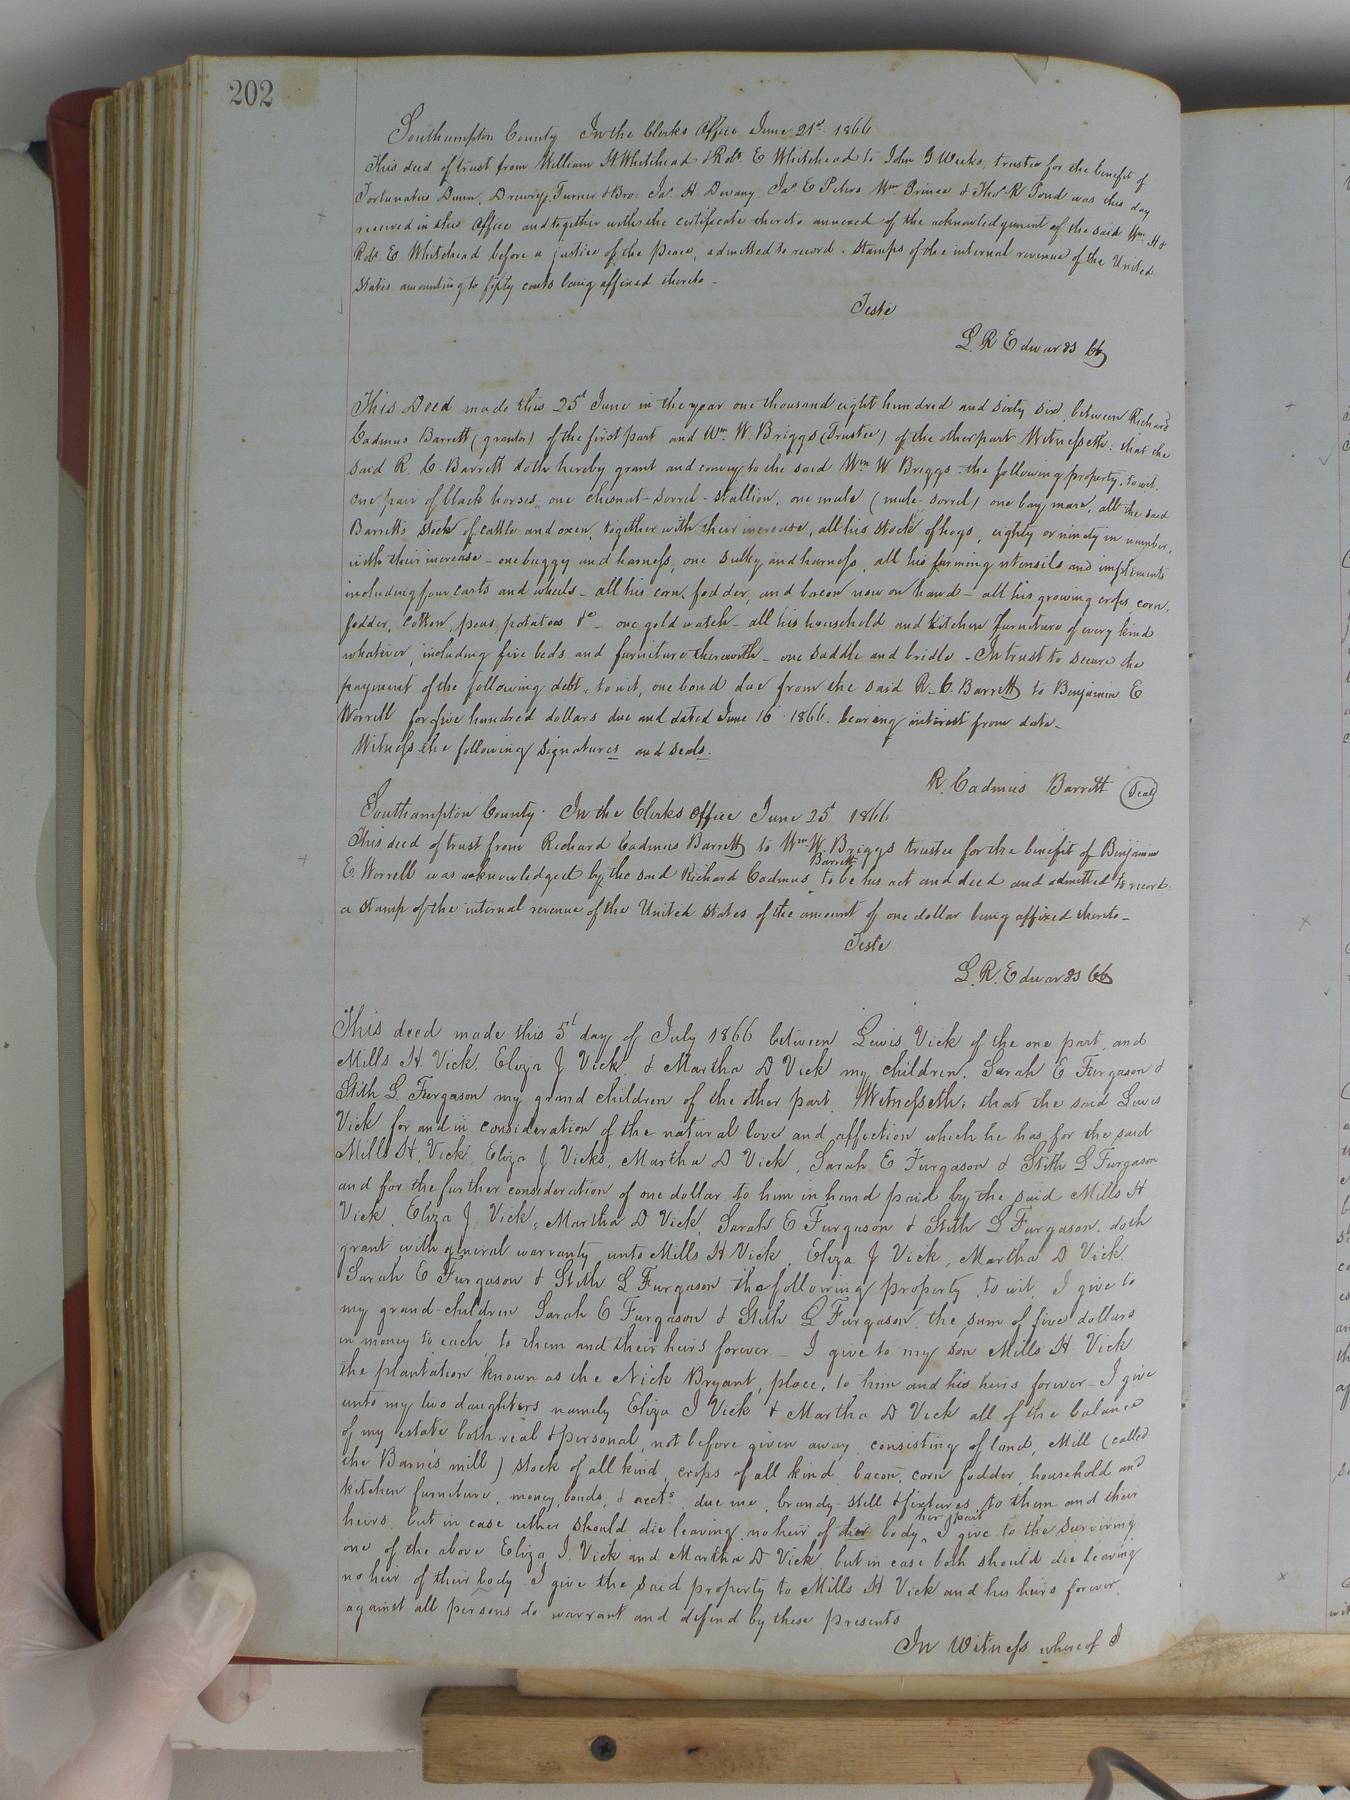 202
Southampton County In the Clerks Office June 21st 1866
This deed of trust from William H Whitehead & Robt. E Whitehead to John G Weeks, trustee for the benefit of
Fortunatus Dunn, Drewry, Turner & Bro. Jas. H Devany. Jas. E Peters Wm Prince & Thos. R Pond was this day
received in this Office and together with the certificate thereto annexed of the acknowledgment of the said Wm H &
Robt. E Whitehead before a justice of the peace, admitted to record. Stamps of the internal revenue of the United
States amounting to fifty cents being affixed thereto -
Teste
L. R Edwards CC
This Deed made this 25t June in the year one thousand eight hundred and sixty six, between Richard
Cadmus Barrett (grantor) of the first part and Wm. W. Briggs (Trustee) of the other part Witnesseth. that the
said R. C. Barrett doth hereby grant and convey to the said Wm W Briggs - the following property, to wit.
One pair of black horses, one chesnut-sorrel-stallion, one mule (mule-sorrel) one bay mare, all the said
Barretts stock of cattle and oxen, together with their increase, all his stock of hogs, eighty or ninety in number,
with their increase - one buggy and harness, one sulky and harness, all his farming utensils and implements
including four carts and wheels - all his corn, fodder, and bacon now on hand - all his growing crops, corn,
fodder, Cotton, peas, potatoes &c - one gold watch - all his household and kitchen furniture of every kind
whatever, including five beds and furniture therewith - one saddle and bridle - In trust to secure the
payment of the following debt, to wit, one bond due from the said R. C. Barrett to Benjamin E
Worrell for five hundred dollars due and dated June 16 1866. bearing interest from date -
Witness the following signatures and seals.
R. Cadmus Barrett Seal
Southampton County. In the Clerks Office June 25 1866
This deed of trust from Richard Cadmus Barrett to Wm W. Briggs trustee for the benefit of Benjamin
Barrett
E. Worrell was acknowledged by the said Richard Cadmus to be his act and deed and admitted to record
a stamp of the internal revenue of the United States of the amount of one dollar being affixed thereto -
Teste
L. R. Edwards CC
This deed made this 5t day of July 1866 between Lewis Vick of the one part, and
Mills H. Vick, Eliza J Vick, & Martha D Vick my children, Sarah E Furgason &
Stith L. Furgason my grand children of the other part. Witnesseth, that the said Lewis
Vick for and in consideration of the natural love and affection which he has for the said
Mills H. Vick, Eliza J Vicks, Martha D Vick, Sarah E Furgason & Stith L Furgason
and for the further consideration of one dollar to him in hand paid by the said Mills H
Vick, Eliza J Vick, Martha D Vick, Sarah E Furgason & Stith L Furgason, doth
grant with general warranty unto Mills H Vick, Eliza J Vick, Martha D Vick
Sarah E Furgason & Stith L Furgason the following property to wit, I give to
my grand-children Sarah E Furgason & Stith L Furgason the sum of five dollars
in money to each, to them and their heirs forever - I give to my son Mills H Vick
the plantation known as the Nick Bryant, place, to him and his heirs forever - I give
unto my two daughters namely Eliza J Vick & Martha D Vick all of the balance
of my estate both real & personal, not before given away, consisting of land, Mill (called
the Barnes mill) stock of all kind, crops of all kind, bacon, corn fodder, household and
kitchen furniture, money, bonds, & accts. due me, brandy-still & fixtures, to them and their
her part
heirs, but in case either should die leaving no heir of body, I give to the surviving
one of the above Eliza J. Vick and Martha D Vick, but in case both should die leaving
no heir of their body I give the said property to Mills H Vick and his heirs forever
against all persons do warrant and defend by these presents
In Witness whereof I